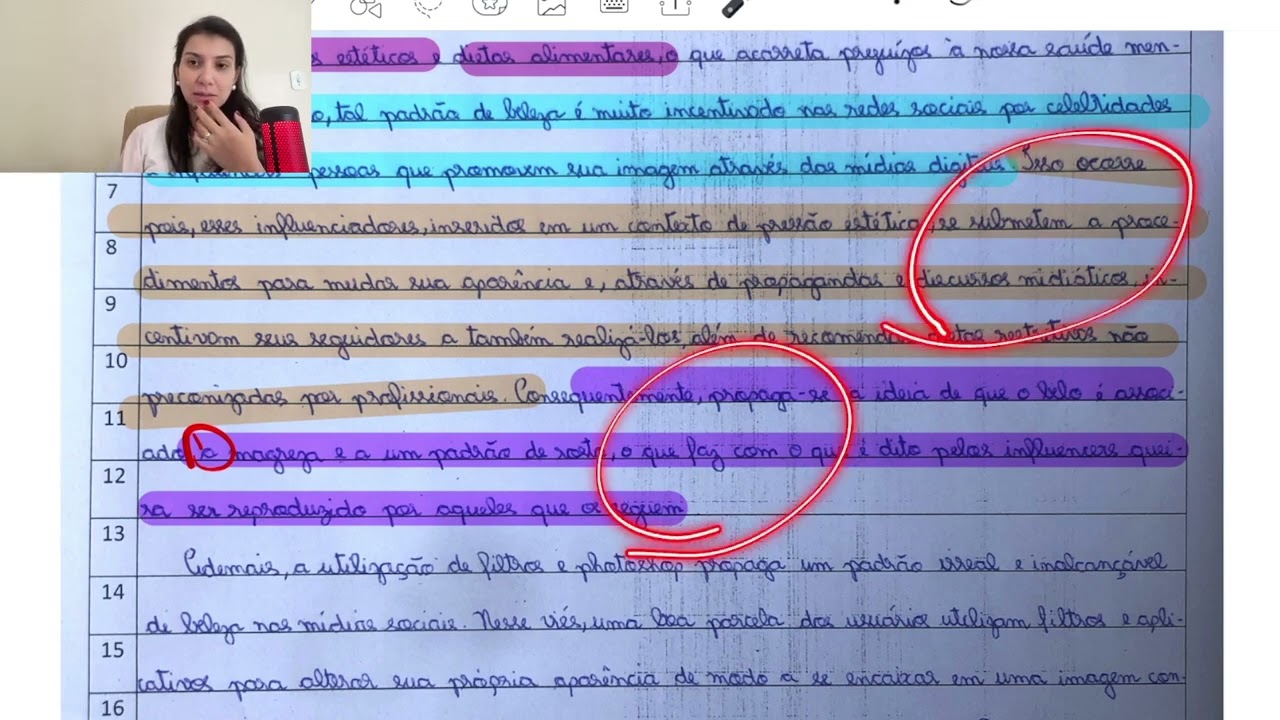 s estéticos e dietas alimentares, o que acarreta prejuízos à nossa saúde men-
o, tal padrão de beleza é muito incentivado nas redes sociais por celebridades
pessoas que promovem sua imagem através das mídias digitais. Isso ocorre
7
pois, esses influenciadores, inseridos em um contexto de pressão estética, se submetem a proce-
8
dimentos para mudar sua aparência e, através de propagandas e discursos midiáticos, in-
9
centivam seus seguidores a também realizá-los, além de recomendar dietas restritivas não
10
preconizadas por profissionais. Consequentemente, propaga-se a ideia de que o belo é associ-
11
ado, à magreza e a um padrão de rosto, o que faz com o que é dito pelos influencers quei-
12
ra ser reproduzido por aqueles que os seguem.
13
Ademais, a utilização de filtros e photoshop propaga um padrão irreal e inalcançável
14
de beleza nas mídias sociais. Nesse viés, uma boa parcela dos usuários utilizam filtros e apli-
15
cativos para alterar sua própria aparência de modo a se encaixar em uma imagem con-
16